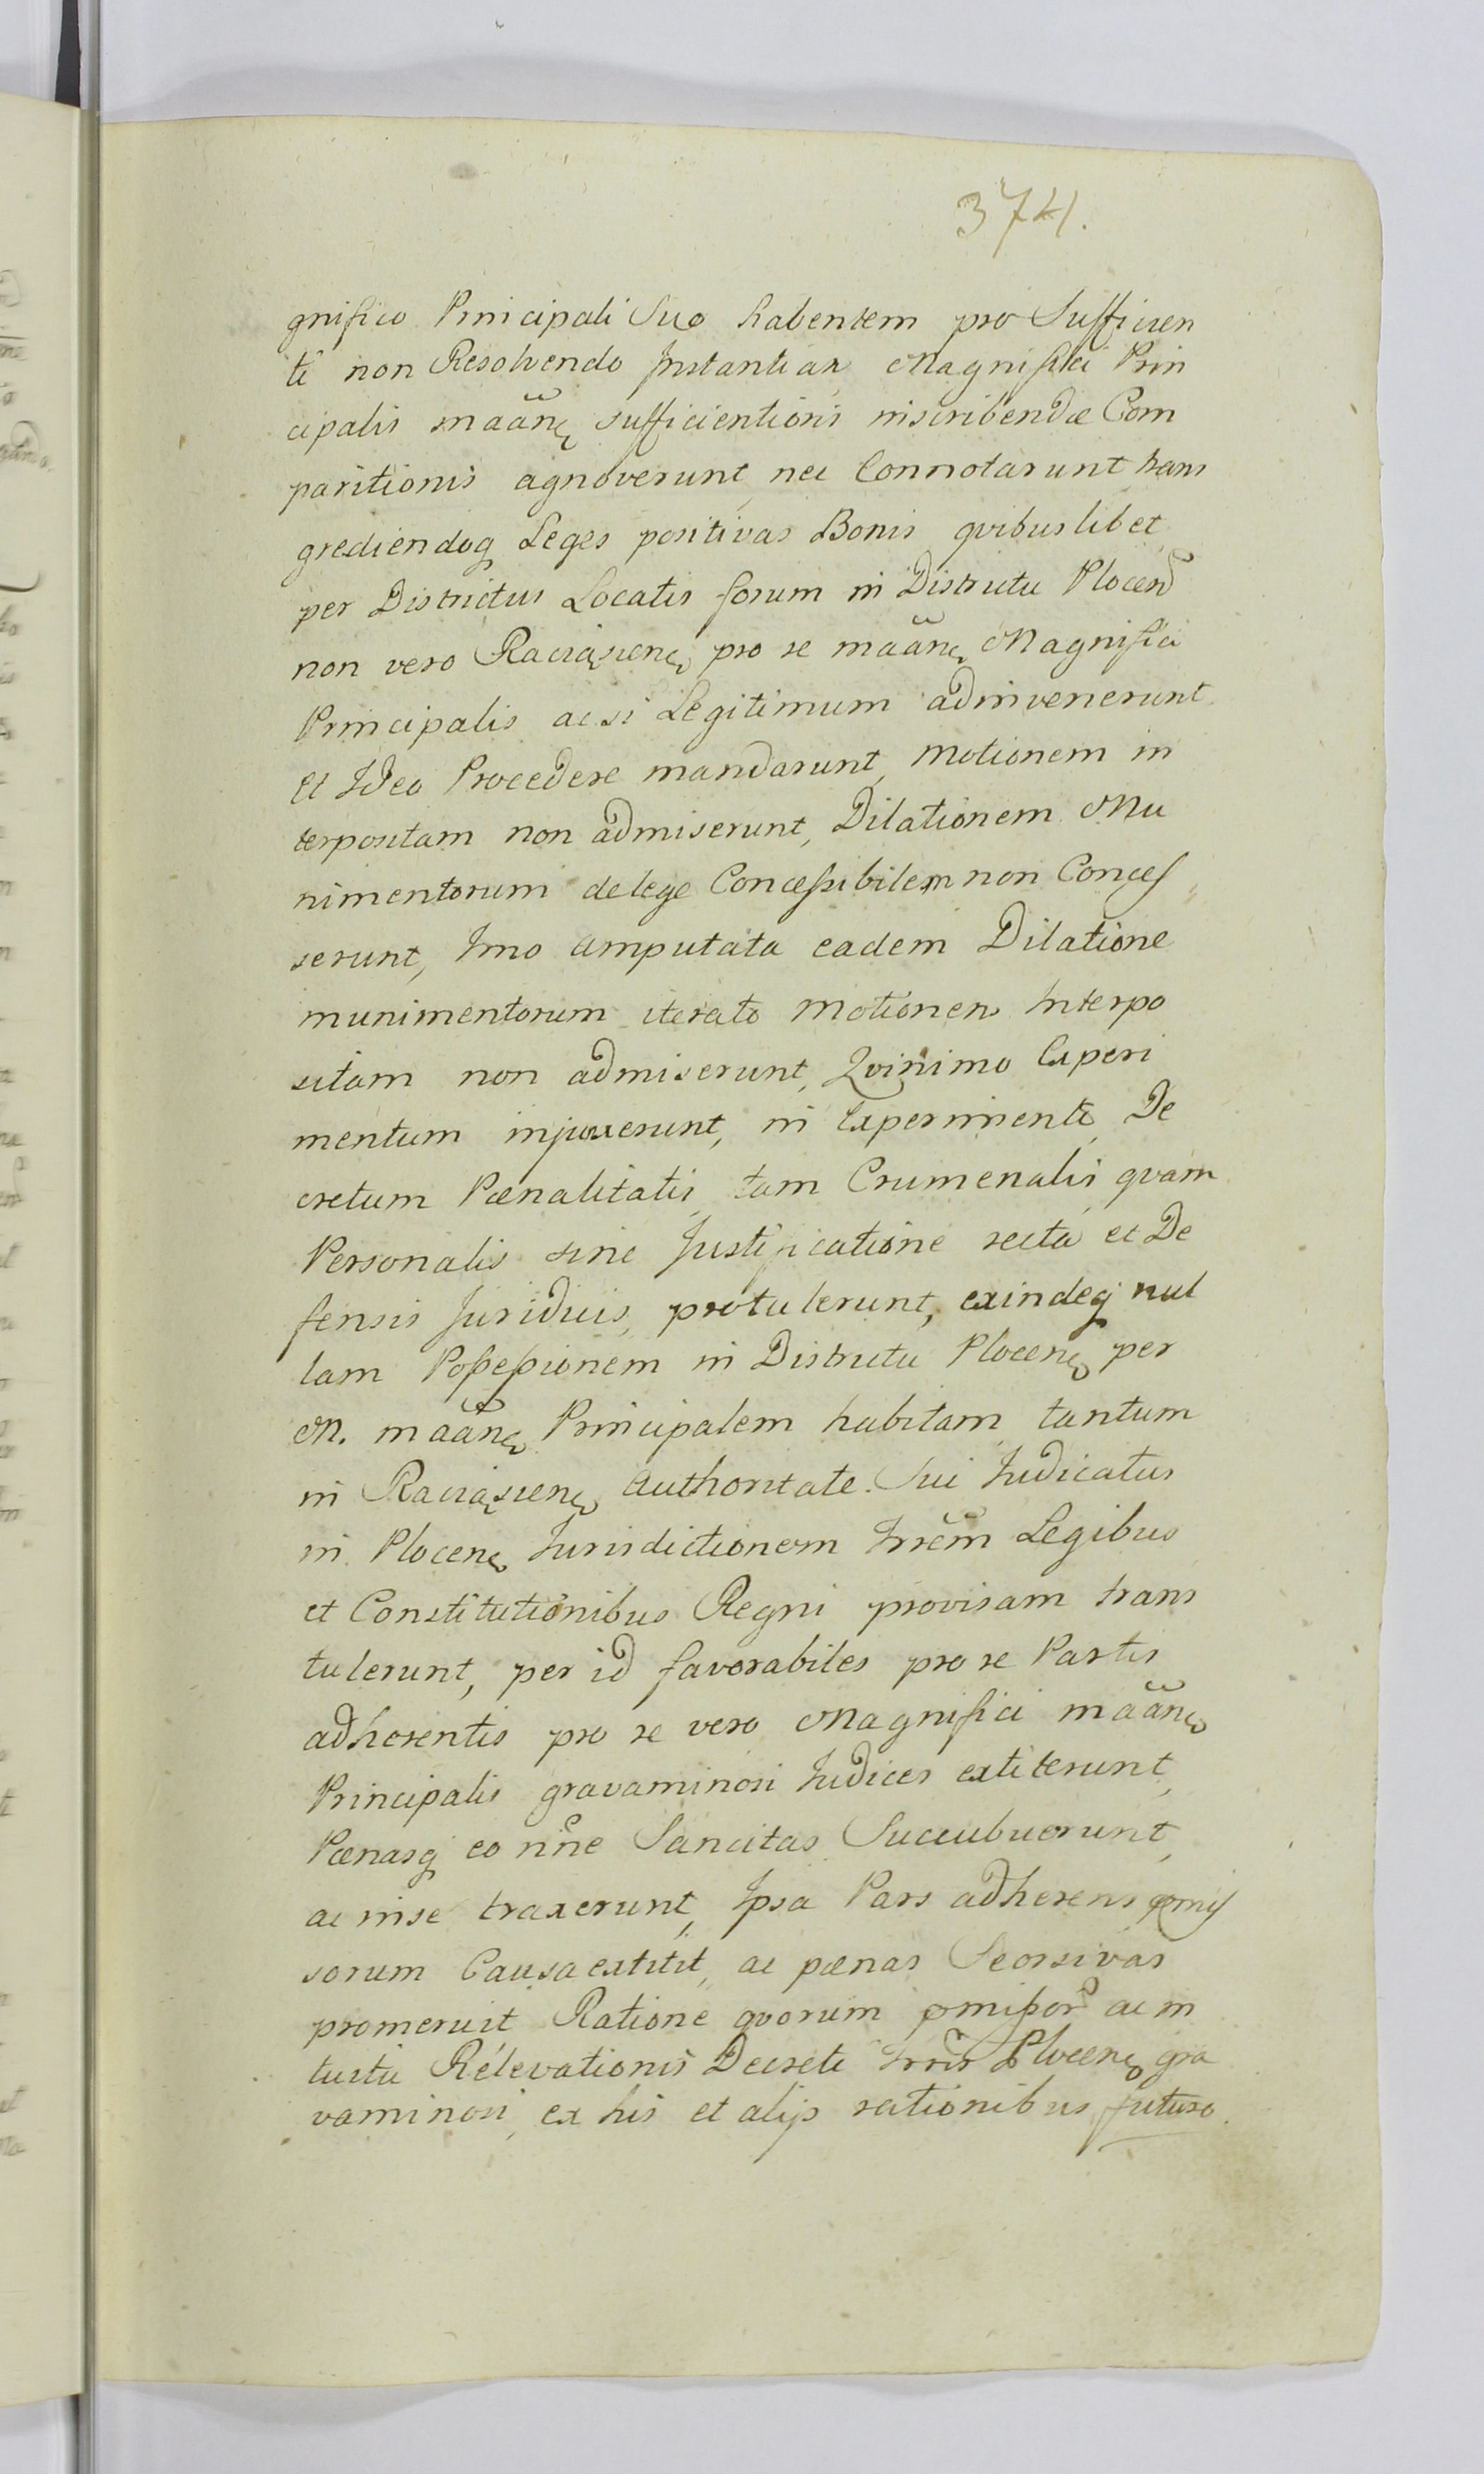 374.
gnifico Principali Suo habentem pro Sufficien
ti non Resolvendo Instantiam Magnifici Prin
cipalis maãnę sufficientioris inscribendæ Com
paritionis agnoverunt, nec Connotarunt trans
grediendoq Leges positivas Bonis qvibuslibet
per Districtus Locatis forum in Districtu Plocen
non vero Raciąscenę pro se maãnę Magnifici
Principalis ac si Legitimum adinvenerunt
et Ideo Procedere mandarunt, Motionem in
terpositam non admiserunt, Dilationem Mu
nimentorum de lege Concessibilem non Conces
serunt, Imo amputata eadem Dilatione
munimentorum iterato Motionem Interpo
sitam non admiserunt, Qvinimo Experi
mentum injunxerunt, in Experimento De
cretum Pœnalitatis, tam Crumenalis, qvam
Personalis sine Justificatione recta et De
fensis Juridicis, protulerunt, exindeq nul
lam Possessionem in Districtu Plocenę per
M. maãnę Principalem habitam, tantum
in Raciąscenę authoritate Sui Judicatus
in Plocenę Jurisdictionem Trrem Legibus
et Constitutionibus Regni provisam trans
tulerunt, per id favorabiles pro se Partis
adherentis pro se vero Magnifici maãnę
Principalis gravaminosi Judices extiterunt,
Pœnasq eo nñe Sancitas Succubuerunt,
ac in se traxerunt, Ipsa Pars adherens pmis
sorum Causa extitit, ac pœnas Seorsivas
promeruit Ratione qvorum pmissor ac in
tuitu Relevationis Decreti Trris Plocenę gra
vaminosi, ex his et alijs rationibus futuro